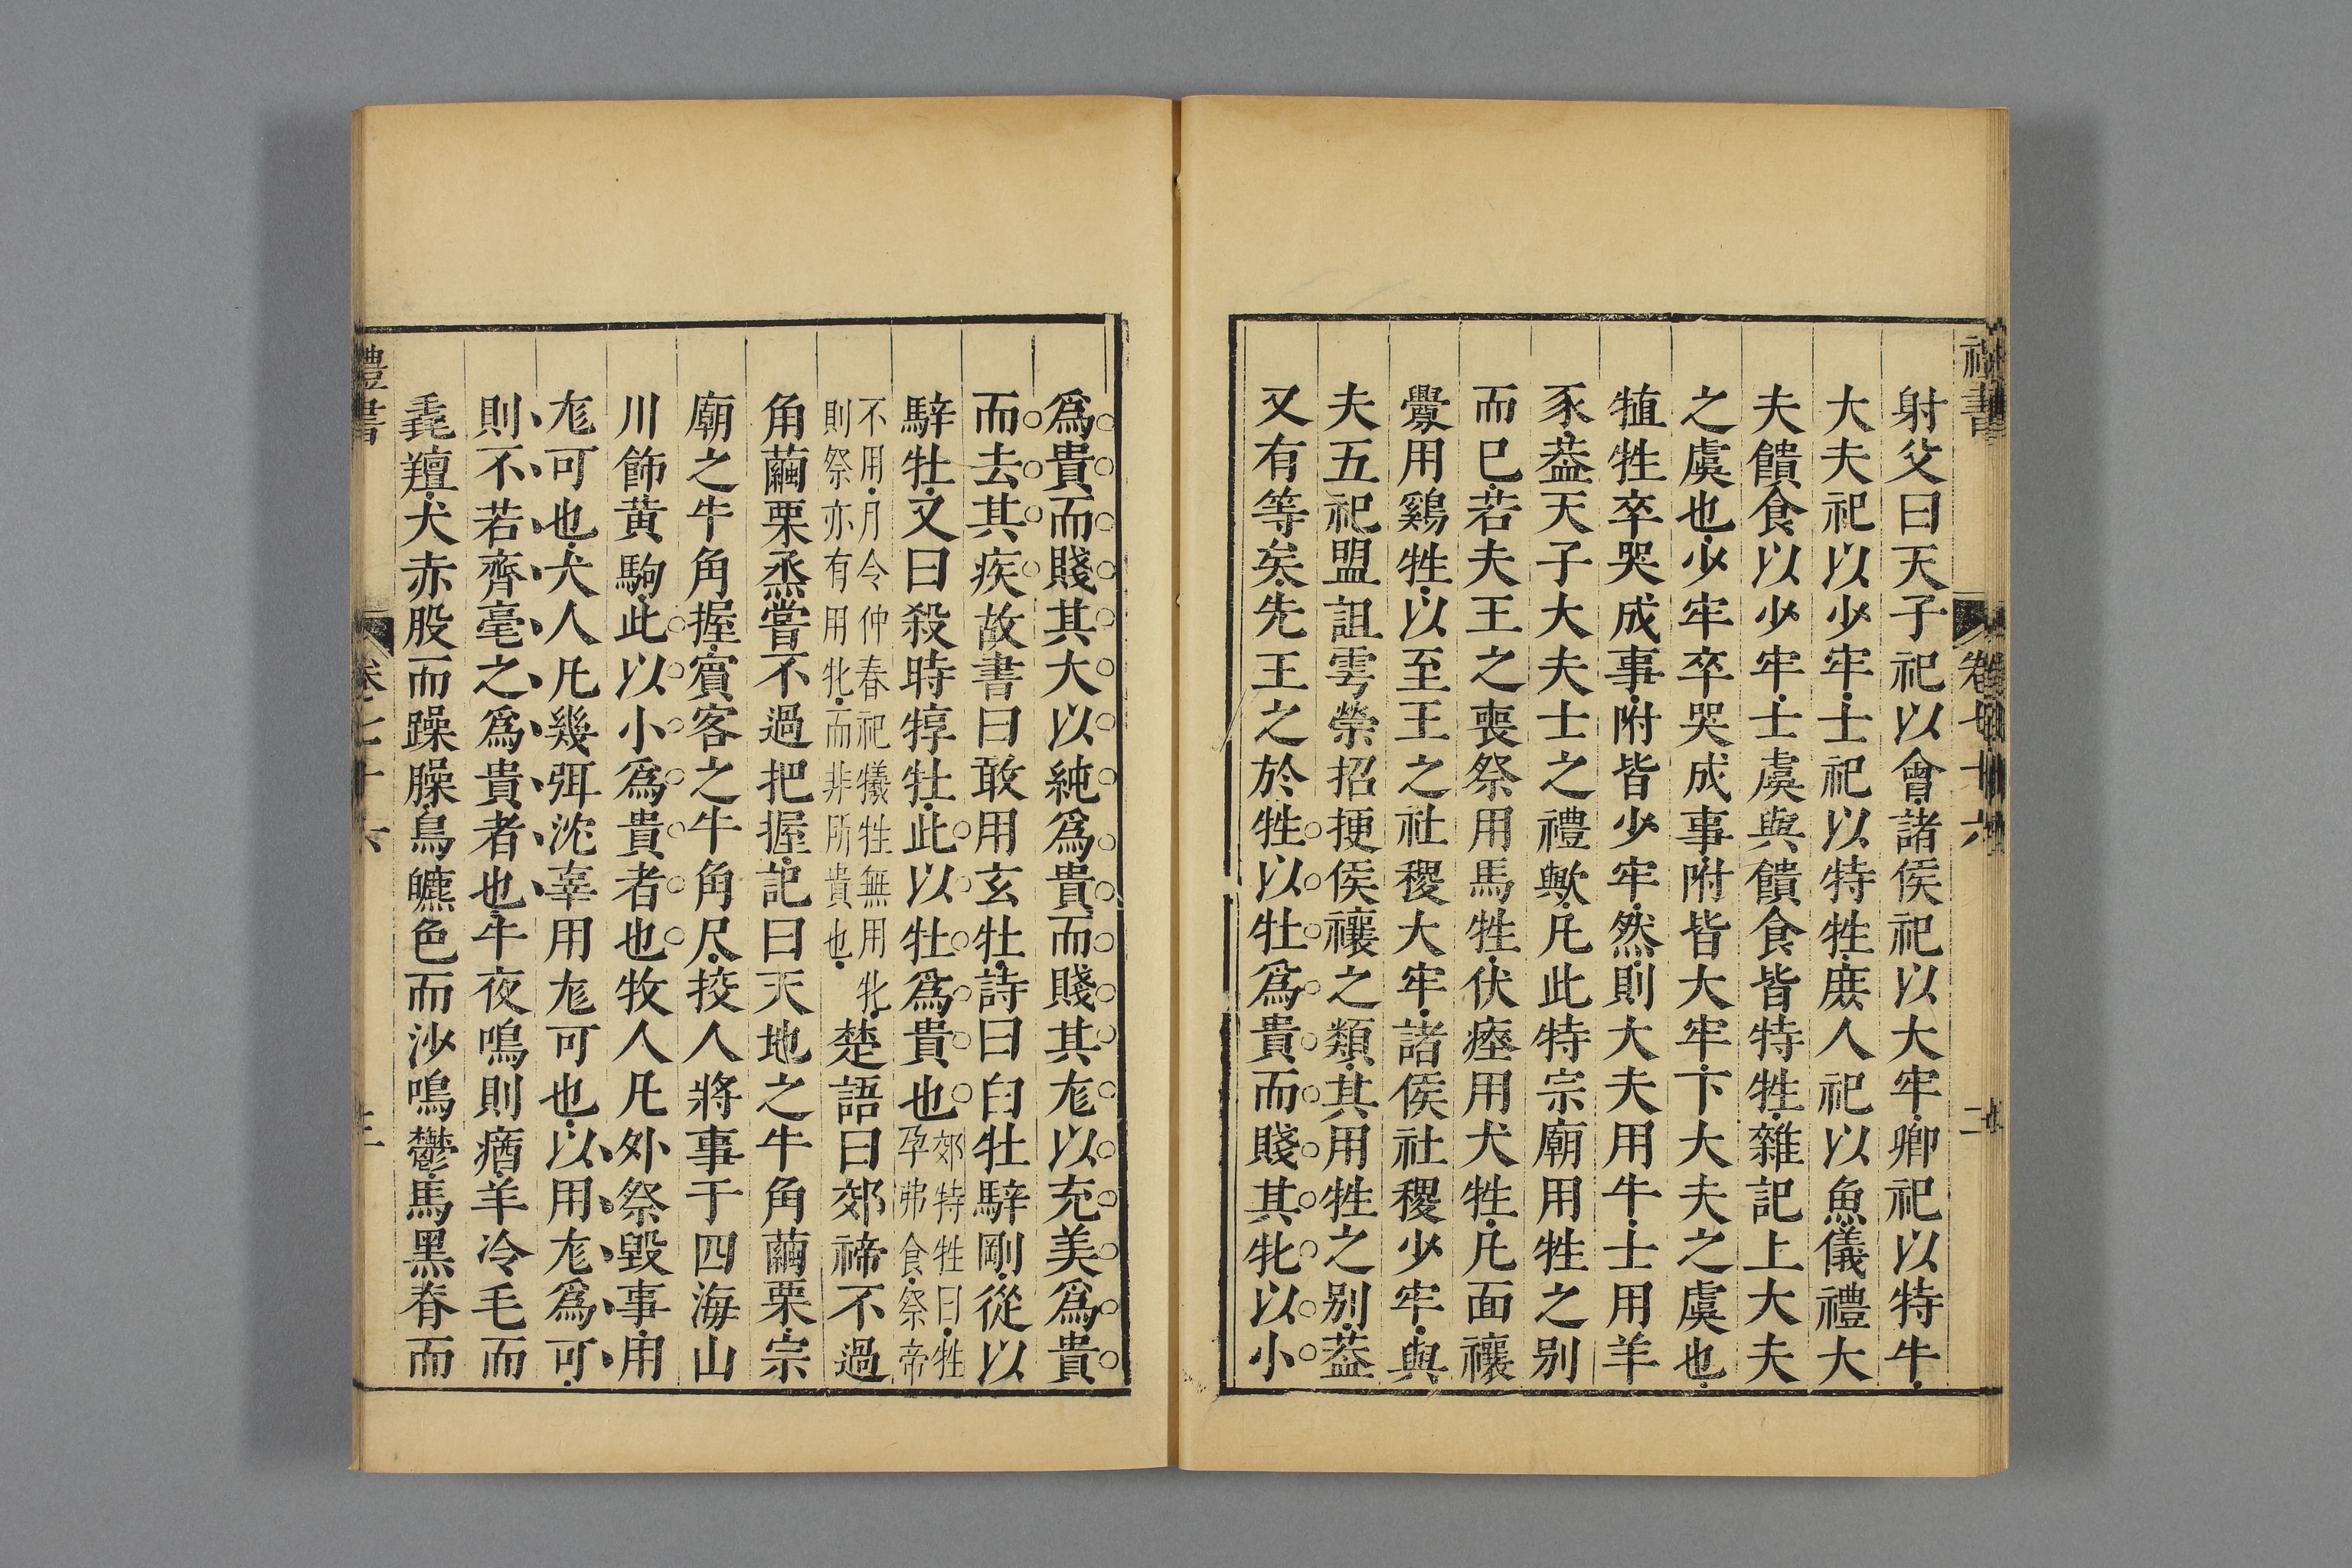 射父曰天子祀以會諸侯祀以大牢卿祀以特牛
大夫祀以少牢士祀以特牲庶人祀以魚儀禮大
夫饋食以少牢士虞與饋食皆特牲雜記上大夫
之虞也少牢卒哭成事附皆大牢下大夫之虞也
犆牲卒哭成事附皆少牢然則大夫用牛士用羊
豕葢天子大夫士之禮歟凡此特宗廟用牲之别
而已若夫王之喪祭用馬牲伏瘞用犬牲凡面禳
釁用鷄牲以至王之社稷大牢諸侯社稷少牢與
夫五祀盟詛雩禜招挭侯禳之類其用牲之别葢
又有等矣先王之於牲以牡爲貴而賤其牝以小
爲貴而賤其大以純爲貴而賤其尨以充美爲貴
而去其疾故書曰敢用玄牡詩曰白牡騂剛從以
騂牡又曰殺時犉牡此以牡爲貴也郊特牲曰牲
孕弗食祭帝
不用月令仲春祀犧牲無用牝
則祭亦有用牝而非所貴也楚語曰郊禘不過
角繭栗烝嘗不過把握記曰天地之牛角繭栗宗
廟之牛角握賓客之牛角尺挍人將事于四海山
川飾黄駒此以小爲貴者也牧人凡外祭毀事用
尨可也犬人凡幾弭沈辜用尨可也以用尨爲可
則不若齊毫之爲貴者也牛夜鳴則㾞羊冷毛而
毳羶犬赤股而躁臊鳥皫色而沙鳴鬱馬黑脊而
禮書
卷七十六
二